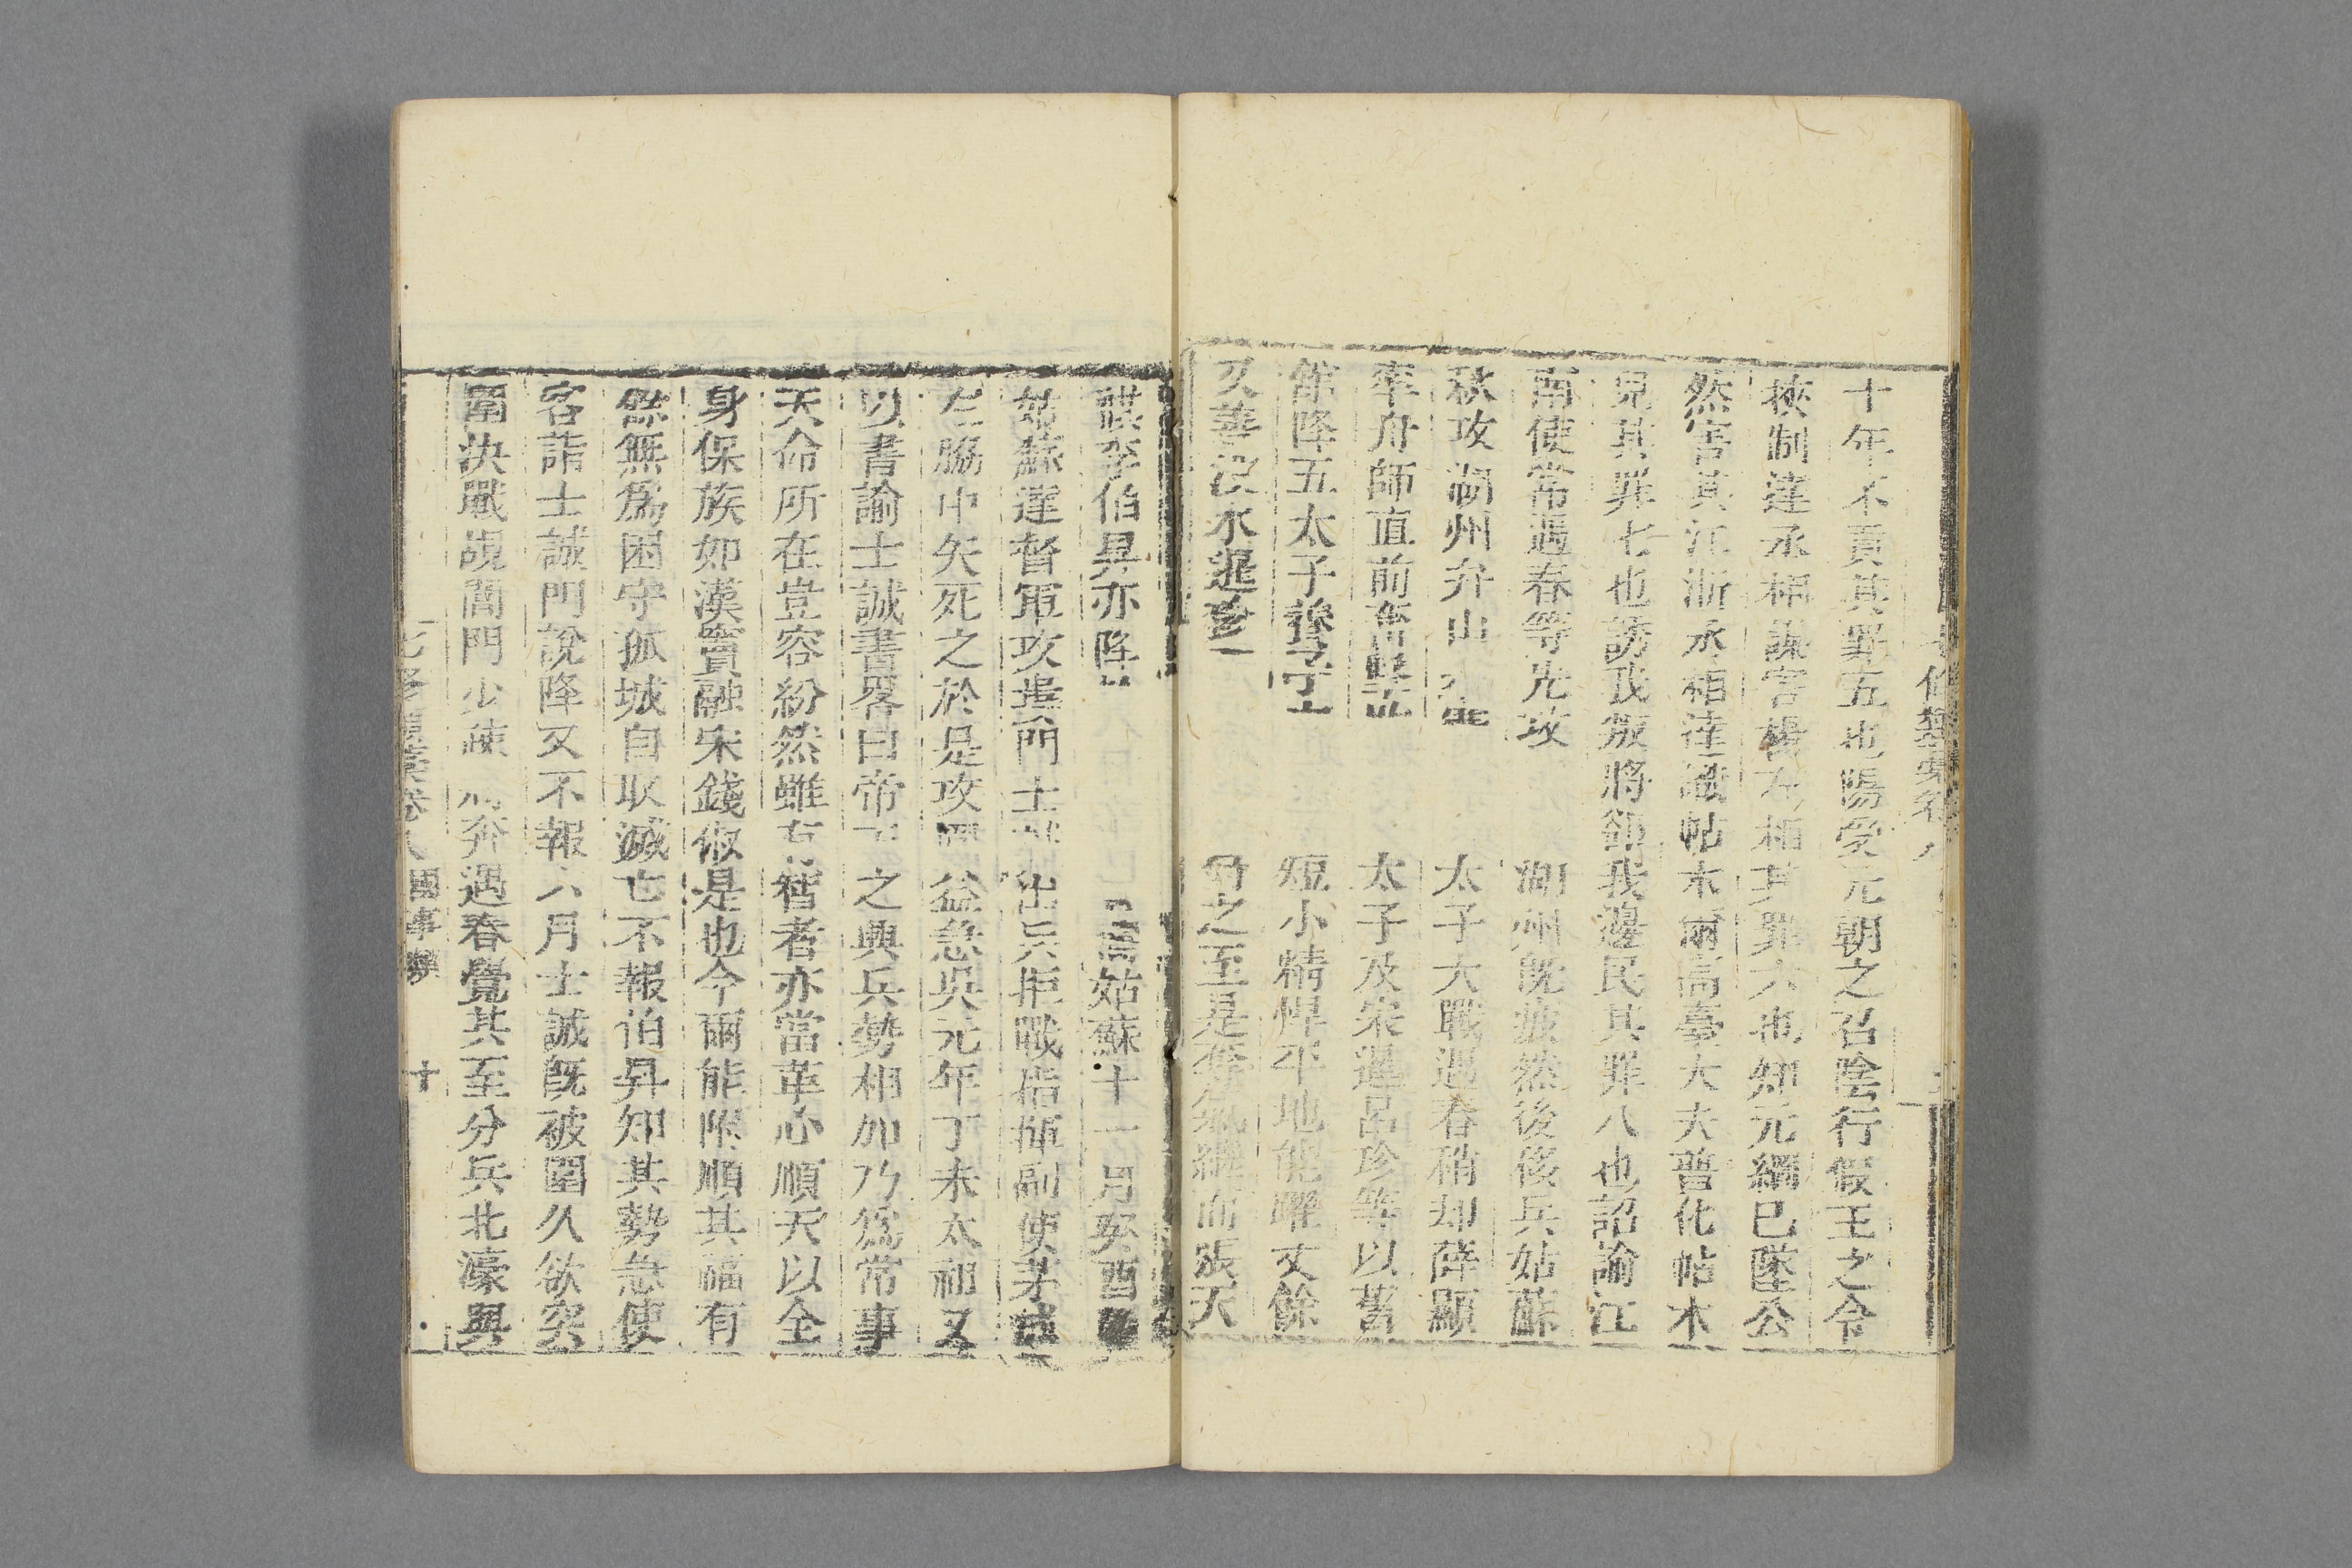 十年不貢其罪五也陽受元朝之召陰行假王之令
挾制達丞相謀害楊左丞相其罪六也知元綱已墜公
然害其江浙丞相達識帖木爾南臺大夫普化帖木
兒其罪七也誘我叛將郤我邊民其罪八也詔諭江
南使常遇春等先攻 湖州既疲然後移兵姑蘇
秋攻湖州弁山 太子大戰遇春稍却薛顯
率舟師直前奮擊 太子及朱暹呂珍等以舊
舘降五太子養子 短小精悍平地能躍丈餘
又善没水暹珍 之至是奪氣繼而張天
祺李伯昇亦降 姑蘇十一月癸酉
姑蘇達督軍攻婁門士 出兵拒戰指揮副使茅
左脇中矢死之於是攻 益急吳元年丁未太祖又
以書諭士誠書畧曰帝王之興兵勢相加乃爲常事
天命所在豈容紛然雖有智者亦當革心順天以全
身保族如漢竇融宋錢俶是也今爾能附順其福有
餘無爲困守孤城自取滅亡不報伯昇知其勢急使
客詣士誠門說降又不報六月士誠既被圍久欲突
圍決戰覘閶門少疎 奔遇春覺其至分兵北濠與
七修類藁卷八 國事類 十